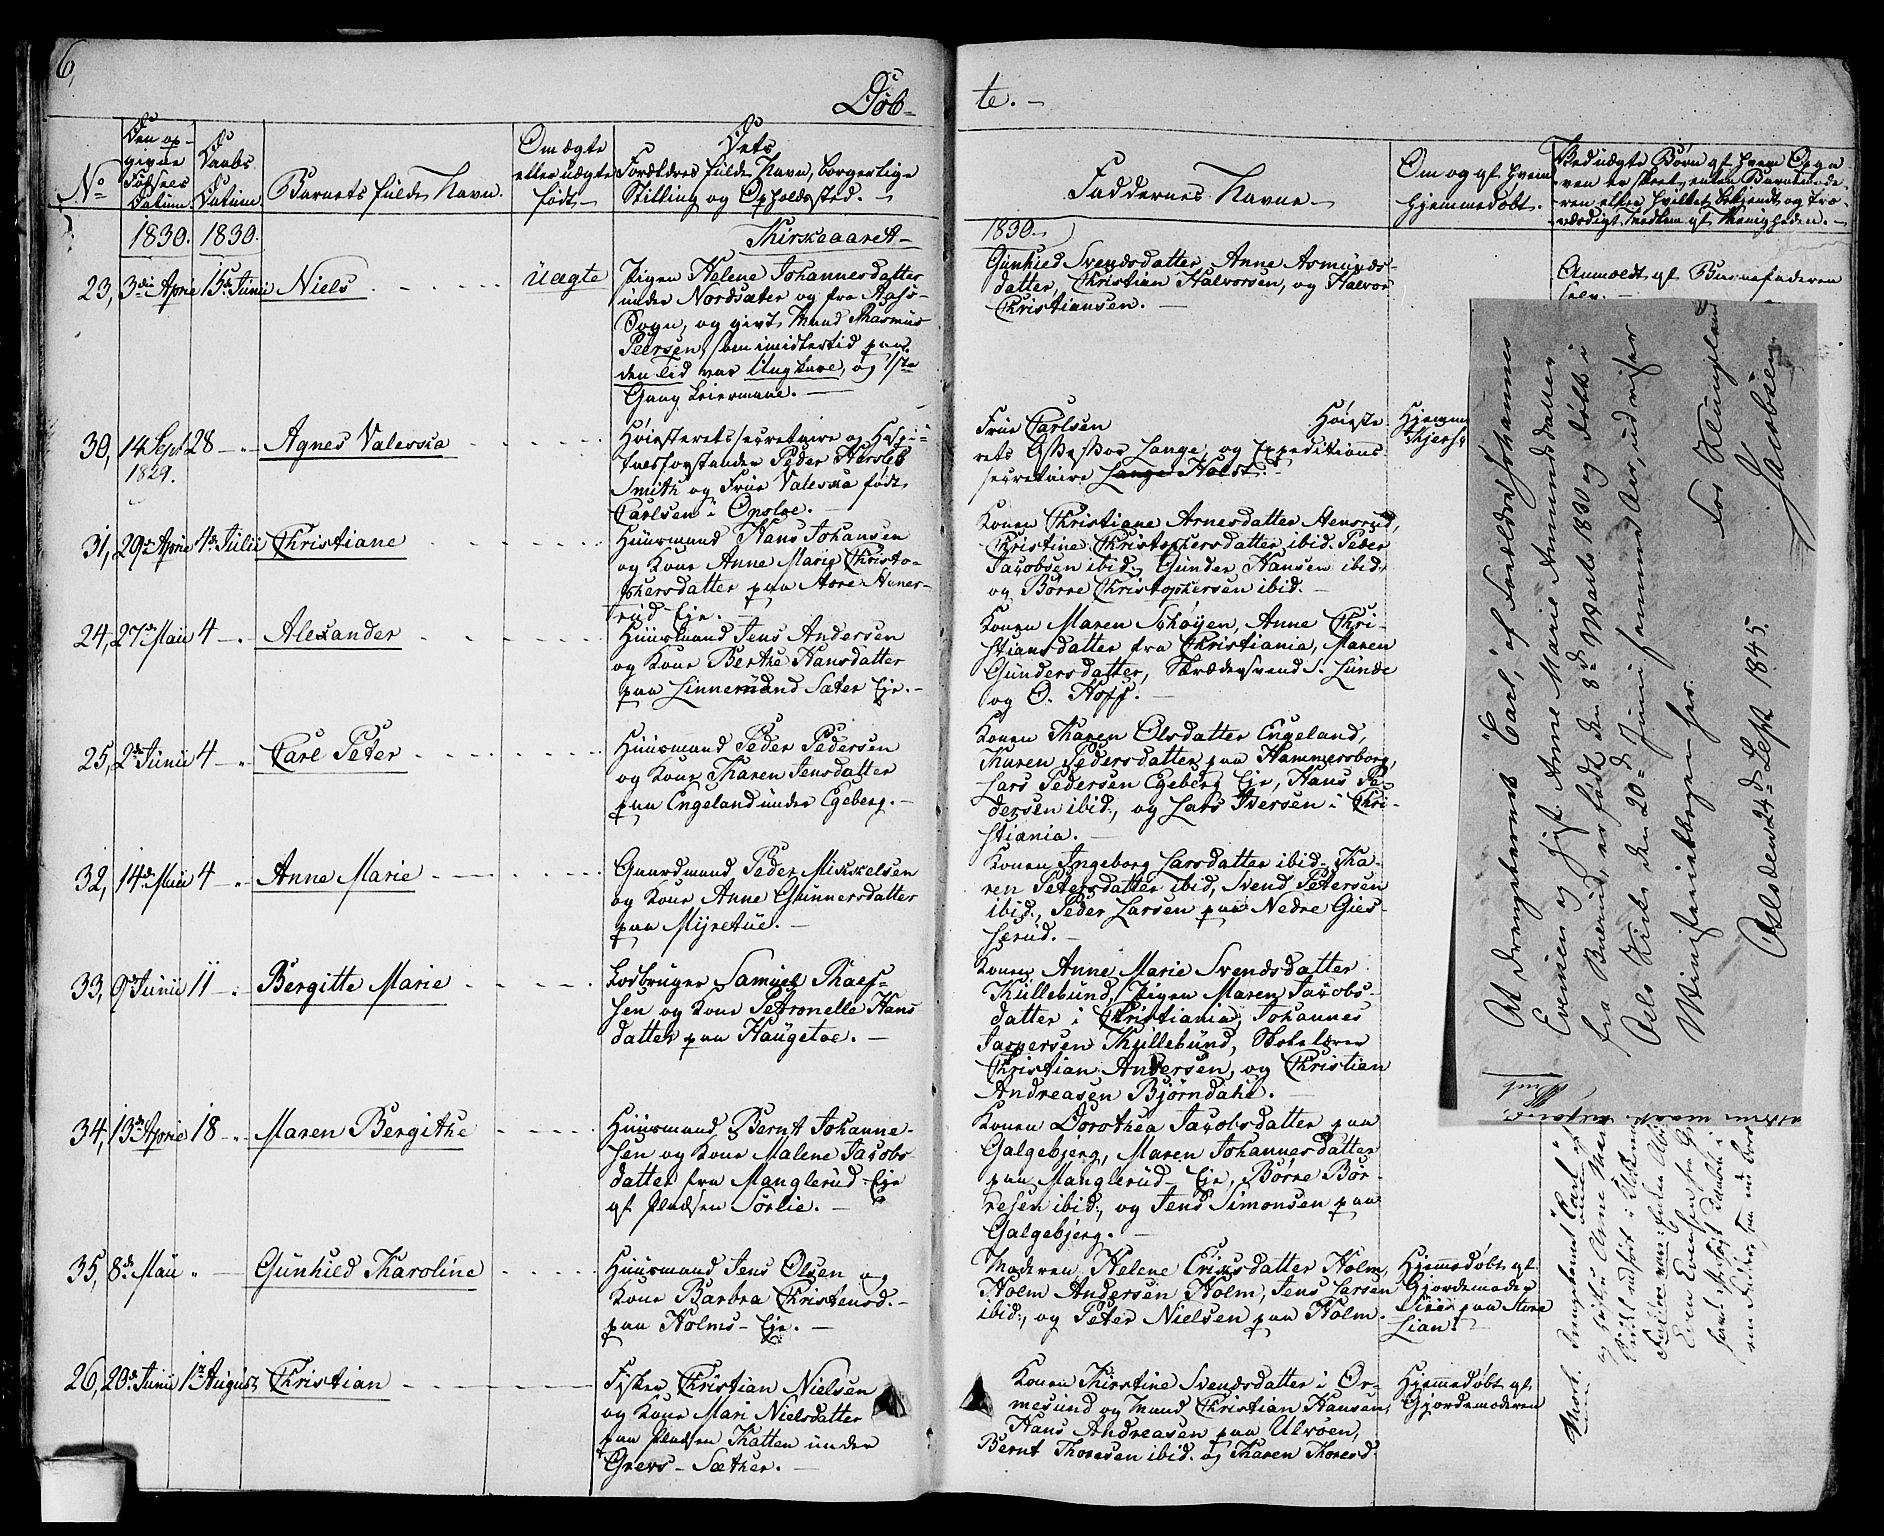 6,
Døb-
te. -
No
Den op-
gevne
Fødsels
Datum
Daabs
Datum
Barnets fulde Navn.
Om ægte
eller uægte
født
Dets
Forældres fulde Navn, borgerlige
Stilling og Opholdssted. -
Faddernes Navne. -
Om og af hvem
hjemmedøbt.
1830. 1830.
Kirkeaaret
1830.
23, 3die April 13de Junii Niels uægte
Pigen Helene Johannesdatter
under Nordsæter og fra Aass-
Sogn, og givt Mand Rasmus
Peersen, som imidlertid paa
den Tid var Ungkarl, og 1ste
Gang Leiermaal. -
Gunhild Svendsdatter, Anne Asmunds-
datter, Christian Halvorsen, og Halvor
Christiansen. -
Anmeldt af Barnefaderen
selv. -
30, 14 Sept 28 - Agnes Valeska
1829.
Høiesteretssecretaire og Hospi-
talsforstander Peder Hersleb
Smith og Frue Valeska født
Carlsen i Opsloe. -
Frue Carlsen Høieste-
rets Assessor Lange, og Expeditions-
secretaire Lange Holst. -
Hjemme
31, 29de April 4de Julii Christiane
Huusmand Hans Johansen
og Kone Anne Marie Christo-
phersdatter paa Aore Abner-
rud Eje. -
Konen Christiane Arnesdatter Stensrud,
Christine Christophersdatter ibid. Peter
Jacobsen ibid., Gunder Hansen ibid.,
og Børre Christophersen ibid. -
24, 27de Maii 4 - Alexander
Huusmand Jens Andersen
og Kone Berthe Hansdatter
paa Linnerud Sæter Eje. -
Konen Maren Schøyen, Anne Chri-
stiansdatter fra Christiania, Maren
Gundersdatter, Skræddersvend S. Lunde
og O. Hoff. -
25, 2den Junii 4 - Carl Peter
Huusmand Peder Pedersen
og Kone Karen Jensdatter
paa Engeland under Egeberg. -
Konen Karen Olsdatter Engeland,
Karen Pedersdatter paa Hammersborg,
Lars Pedersen Egeberg Eje, Hans Pe-
dersen ibid., og Lars Iversen i Chri-
stiania. -
32, 14de Maii 4 - Anne Marie
Gaardmand Peder Mikkelsen
og Kone Anne Gunnersdatter
paa Myretue. -
Konen Ingeborg Larsdatter ibid., Ka-
ren Petersdatter ibid, Svend Petersen
ibid., Peder Larsen paa Nedre Gies-
serud. -
33, 9de Junii 11 - Bergitte Marie
Lodbruger Samuel Thaef-
sen og Kone Petronelle Hans
datter paa Haugetoe. -
Konen Anne Marie Svendsdatter
Kullebund, Pigen Maren Jacobs-
datter i Christiania, Johannes
Jaspersen Kullebund, Skolelærer
Christian Andersen, og Christian
Andreasen Bjørndahl. -
34, 13de April 18 - Maren Bergithe
Huusmand Bernt Johanne-
sen og Kone Malene Jacobs
datter fra Manglerud-Eje
af Pladsen Sørlie. -
Konen Dorothea Jacobsdatter paa
Galgebjerg, Maren Johannesdatter
paa Manglerud-Eje, Børre Bør-
resen ibid., og Jens Simonsen paa
Galgebjerg. -
35, 8de Maii " - Gunhild Karoline
Huusmand Jens Olsen og
Kone Barbra Christensd. -
paa Holms-Eje. -
Moderen Helene Ericsdatter Holm,
Holm Andersen Holm, Jens Larsen
ibid., og Peter Nielsen paa Holm.
Hjemmedøbt af
Gjordemoder
Siri paa Store
Lian.
26, 20de Junii 1ste August Christian
Fisker Christian Nielsen
og Kone Mari Nielsdatter
paa Pladsen Katten under
Grevs-Sæther. -
Konen Kirstine Svendsdatter i Or-
mesund og Mand Christian Hansen,
Hans Andreasen paa Ulvøen,
Bernt Thoresen ibid. og Karen Thoresd.
Hjemmedøbt af
Gjordemoderen
At Drengebarnet "Carl", af Forældre Johannes
Evensen og Pige Anne Marie Ammundsdatter
fra Bælerud, er født den 8de Marts 1830 og døbt i
Oslo Kirke den 20de Juni samme Aar, udviser
Ministerialbogen her.
Oslo den 24de Sept 1845.
For Klungland
Jacobsen